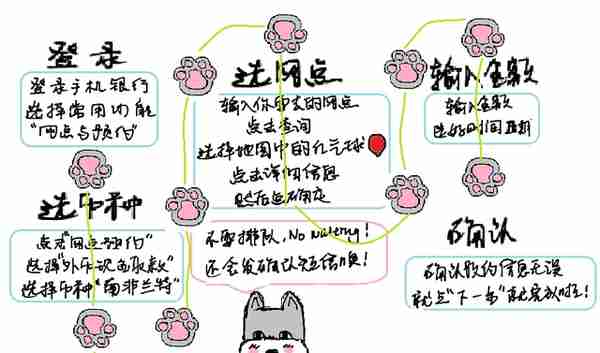 登录
登录手机银行
选择常用功能
"网点与预约"
选币种
点击"网点预约"
选择"外币现钞取款"
选择币种"南非兰特"
选网点
输入你即去的网点
点击查询
选择地图中的红气球
点击详细信息
然后点确定
不要排队, No Waiting!
还会发确认短信噢!
输入金额
输入金额
选好时间区间
确认
确认预约信息无误
就点"下一步"就完成啦!